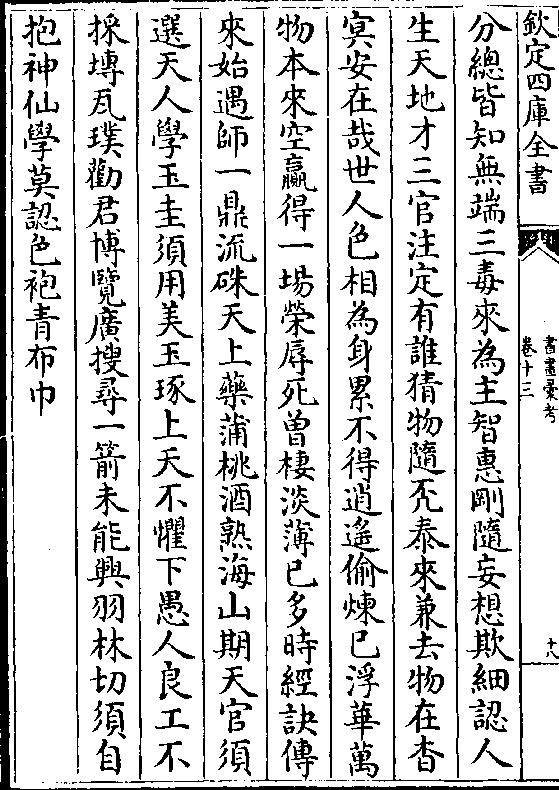 欽定四庫全書
書畫彙考
卷十三
十八
分總皆知無端三毒來為主智惠剛隨妄想欺細認人
生天地才三官注定有誰猜物隨否泰來兼去物在杳
㝠安在哉世人色相為身累不得逍遥偷煉已浮華萬
物本來空贏得一場榮辱死曽棲淡薄已多時經訣傳
來始遇師一鼎流硃天上藥蒲桃酒熟海山期天官須
選天人學玉圭須用美玉琢上天不懼下愚人良工不
採塼瓦璞勸君博覽廣搜尋一箭未能興羽林切須自
抱神仙學莫認色袍青布巾